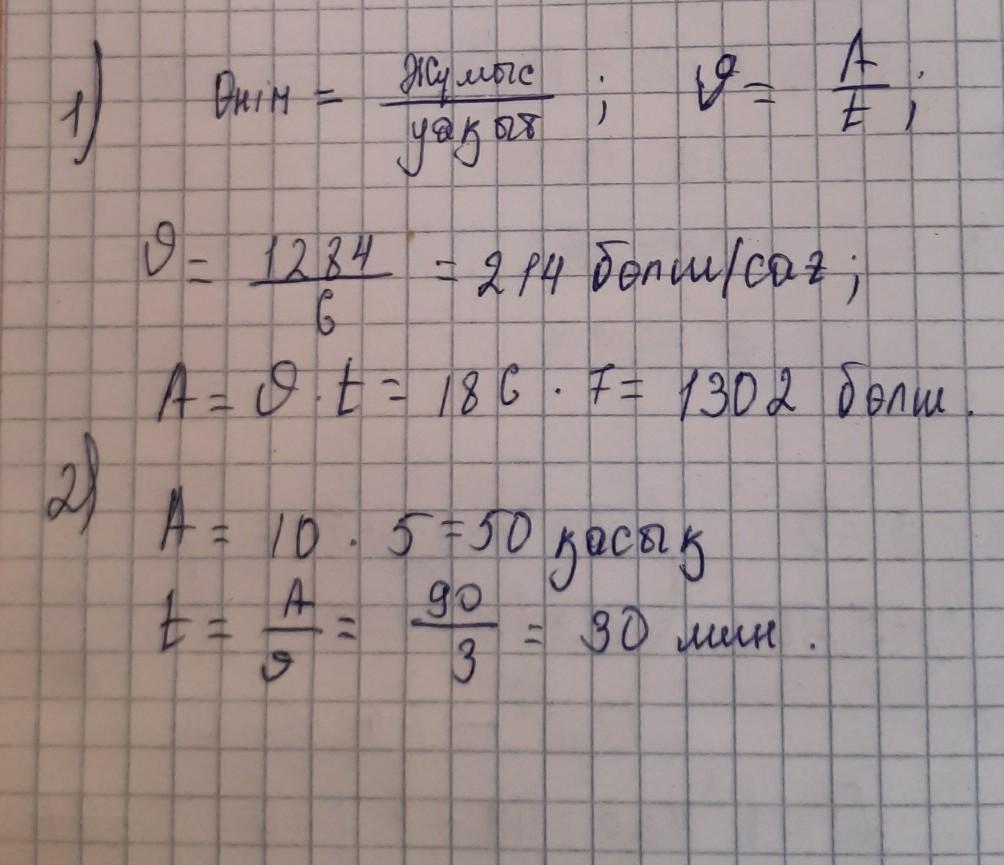 1) Өнім = жұмыс / уақыт ; ϑ = A / t ;
ϑ = 1284 / 6 = 214 бөлш/сағ ;
A = ϑ · t = 186 · 7 = 1302 бөлш.
2) A = 10 · 5 = 50 қасық
t = A / ϑ = 90 / 3 = 30 мин .